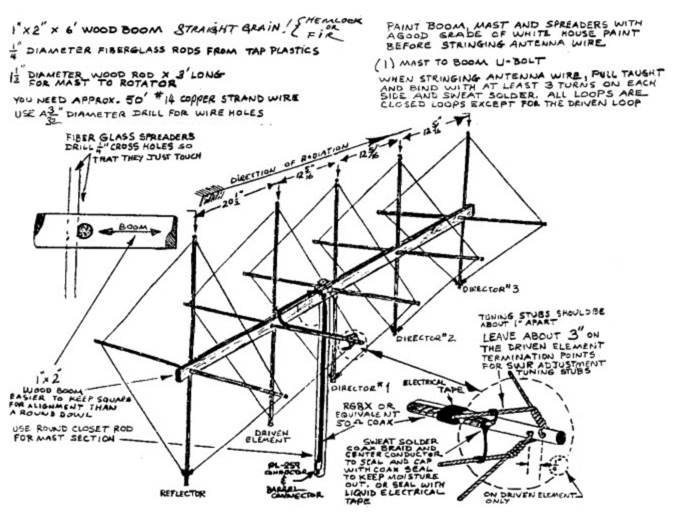 1" x 2" x 6' WOOD BOOM STRAIGHT GRAIN! {HEMLOCK
OR
FIR
1/4" DIAMETER FIBERGLASS RODS FROM TAP PLASTICS
1 1/2" DIAMETER WOOD ROD X 3' LONG
FOR MAST TO ROTATOR
YOU NEED APPROX. 50' #14 COPPER STRAND WIRE
USE A 3/32" DIAMETER DRILL FOR WIRE HOLES
PAINT BOOM, MAST AND SPREADERS WITH
A GOOD GRADE OF WHITE HOUSE PAINT
BEFORE STRINGING ANTENNA WIRE
(1) MAST TO BOOM U-BOLT
WHEN STRINGING ANTENNA WIRE, PULL TAUGHT
AND BIND WITH AT LEAST 3 TURNS ON EACH
SIDE AND SWEAT SOLDER. ALL LOOPS ARE
CLOSED LOOPS EXCEPT FOR THE DRIVEN LOOP
FIBER GLASS SPREADERS
DRILL 1/4" CROSS HOLES SO
THAT THEY JUST TOUCH
BOOM
DIRECTION OF RADIATION
20 1/2"
12 5/16"
12 5/16"
DIRECTOR #3
DIRECTOR #2
DIRECTOR #1
1" x 2"
WOOD BOOM
EASIER TO KEEP SQUARE
FOR ALIGNMENT THAN
A ROUND DOWL
USE ROUND CLOSET ROD
FOR MAST SECTION
REFLECTOR
DRIVEN
ELEMENT
PL-259
CONNECTOR
&
BARREL
CONNECTOR
TUNING STUBS SHOULD BE
ABOUT 1" APART
LEAVE ABOUT 3" ON
THE DRIVEN ELEMENT
TERMINATION POINTS
FOR SWR ADJUSTMENT
TUNING STUBS
ELECTRICAL
TAPE
RG8X OR
EQUIVALENT
50Ω COAX
SWEAT SOLDER
COAX BRAID AND
CENTER CONDUCTOR
TO SEAL AND CAP
WITH COAX SEAL
TO KEEP MOISTURE
OUT. OR SEAL WITH
LIQUID ELECTRICAL
TAPE
ON DRIVEN ELEMENT
ONLY